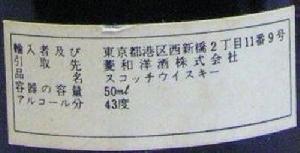 輸入者及び 東京都港区西新橋2丁目11番9号
引取先 菱和洋酒株式会社
品名 スコッチウイスキー
容器の容量 50ml
アルコール分 43度